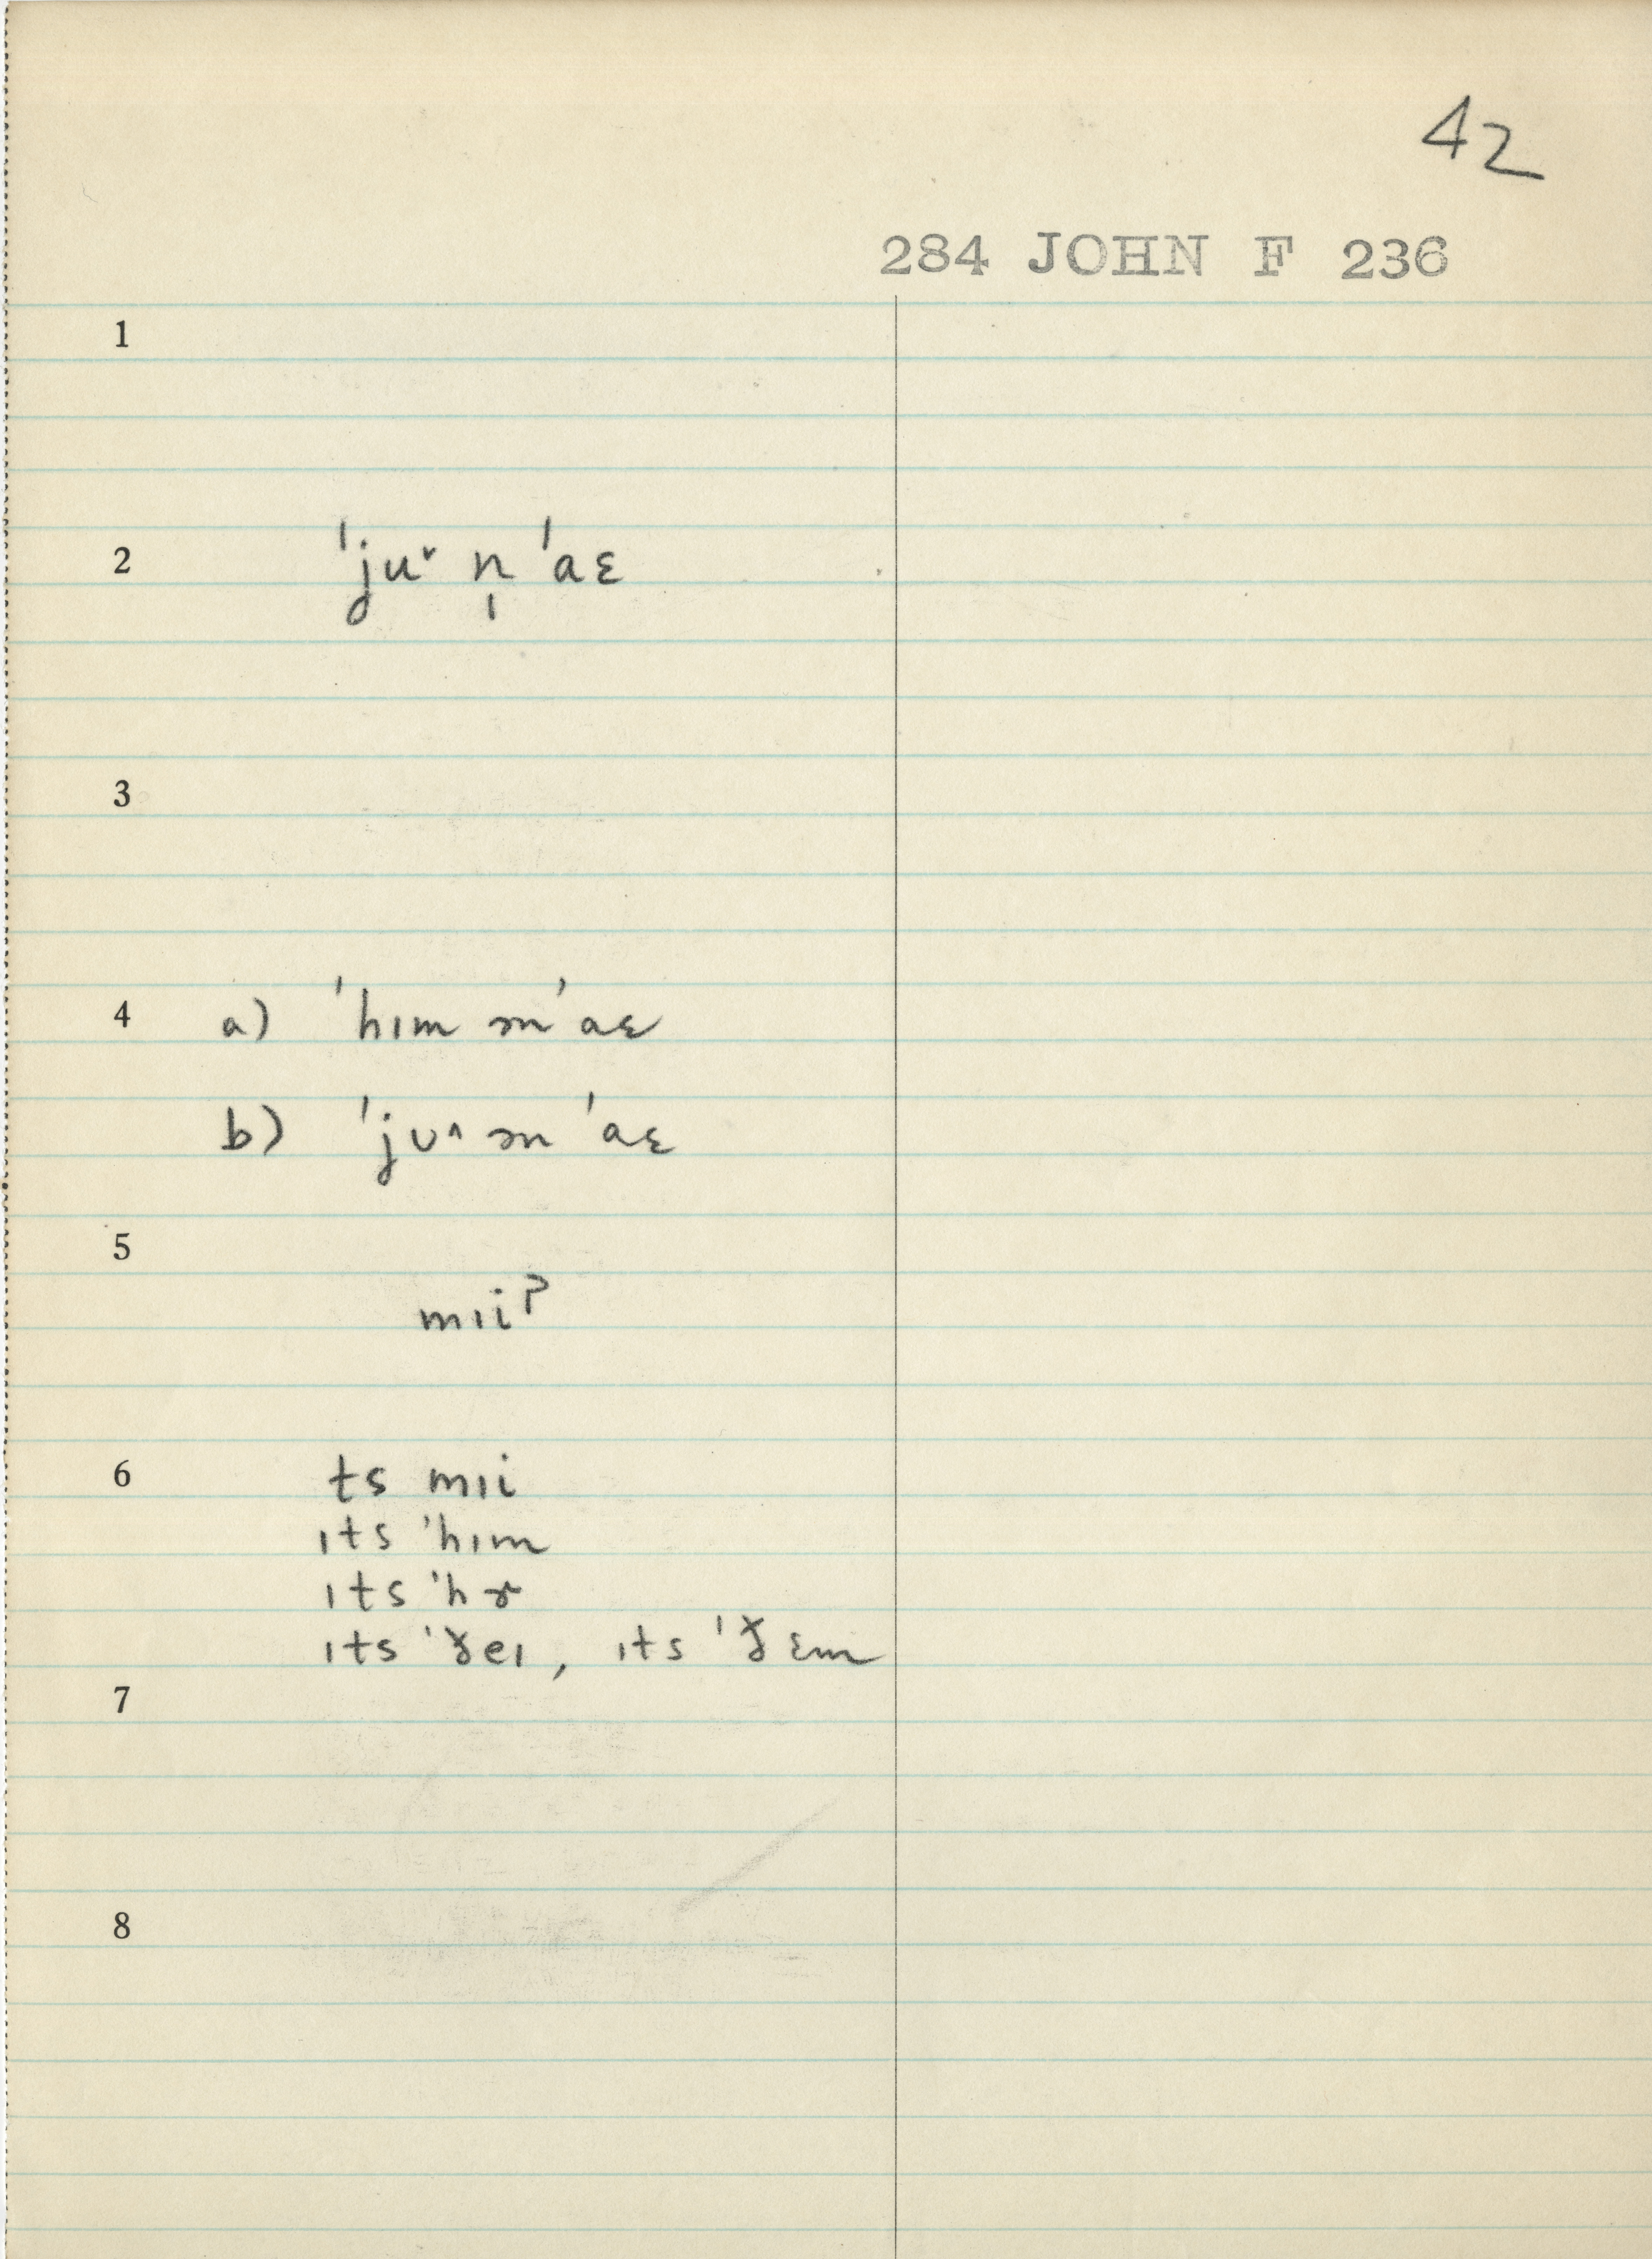 42
284 JOHN F 236
1
2 ˈjuˇ n̩ ˈaɛ
3
4 a) ˈhɪm ən ˈaɛ
b) ˈjʊ^ ən ˈaɛ
5
mɪiˀ
6 ts mɪi
ɪts ˈhɪm
ɪts ˈhɚ
ɪts ˈðeɪ, ɪts ˈðɛm
7
8